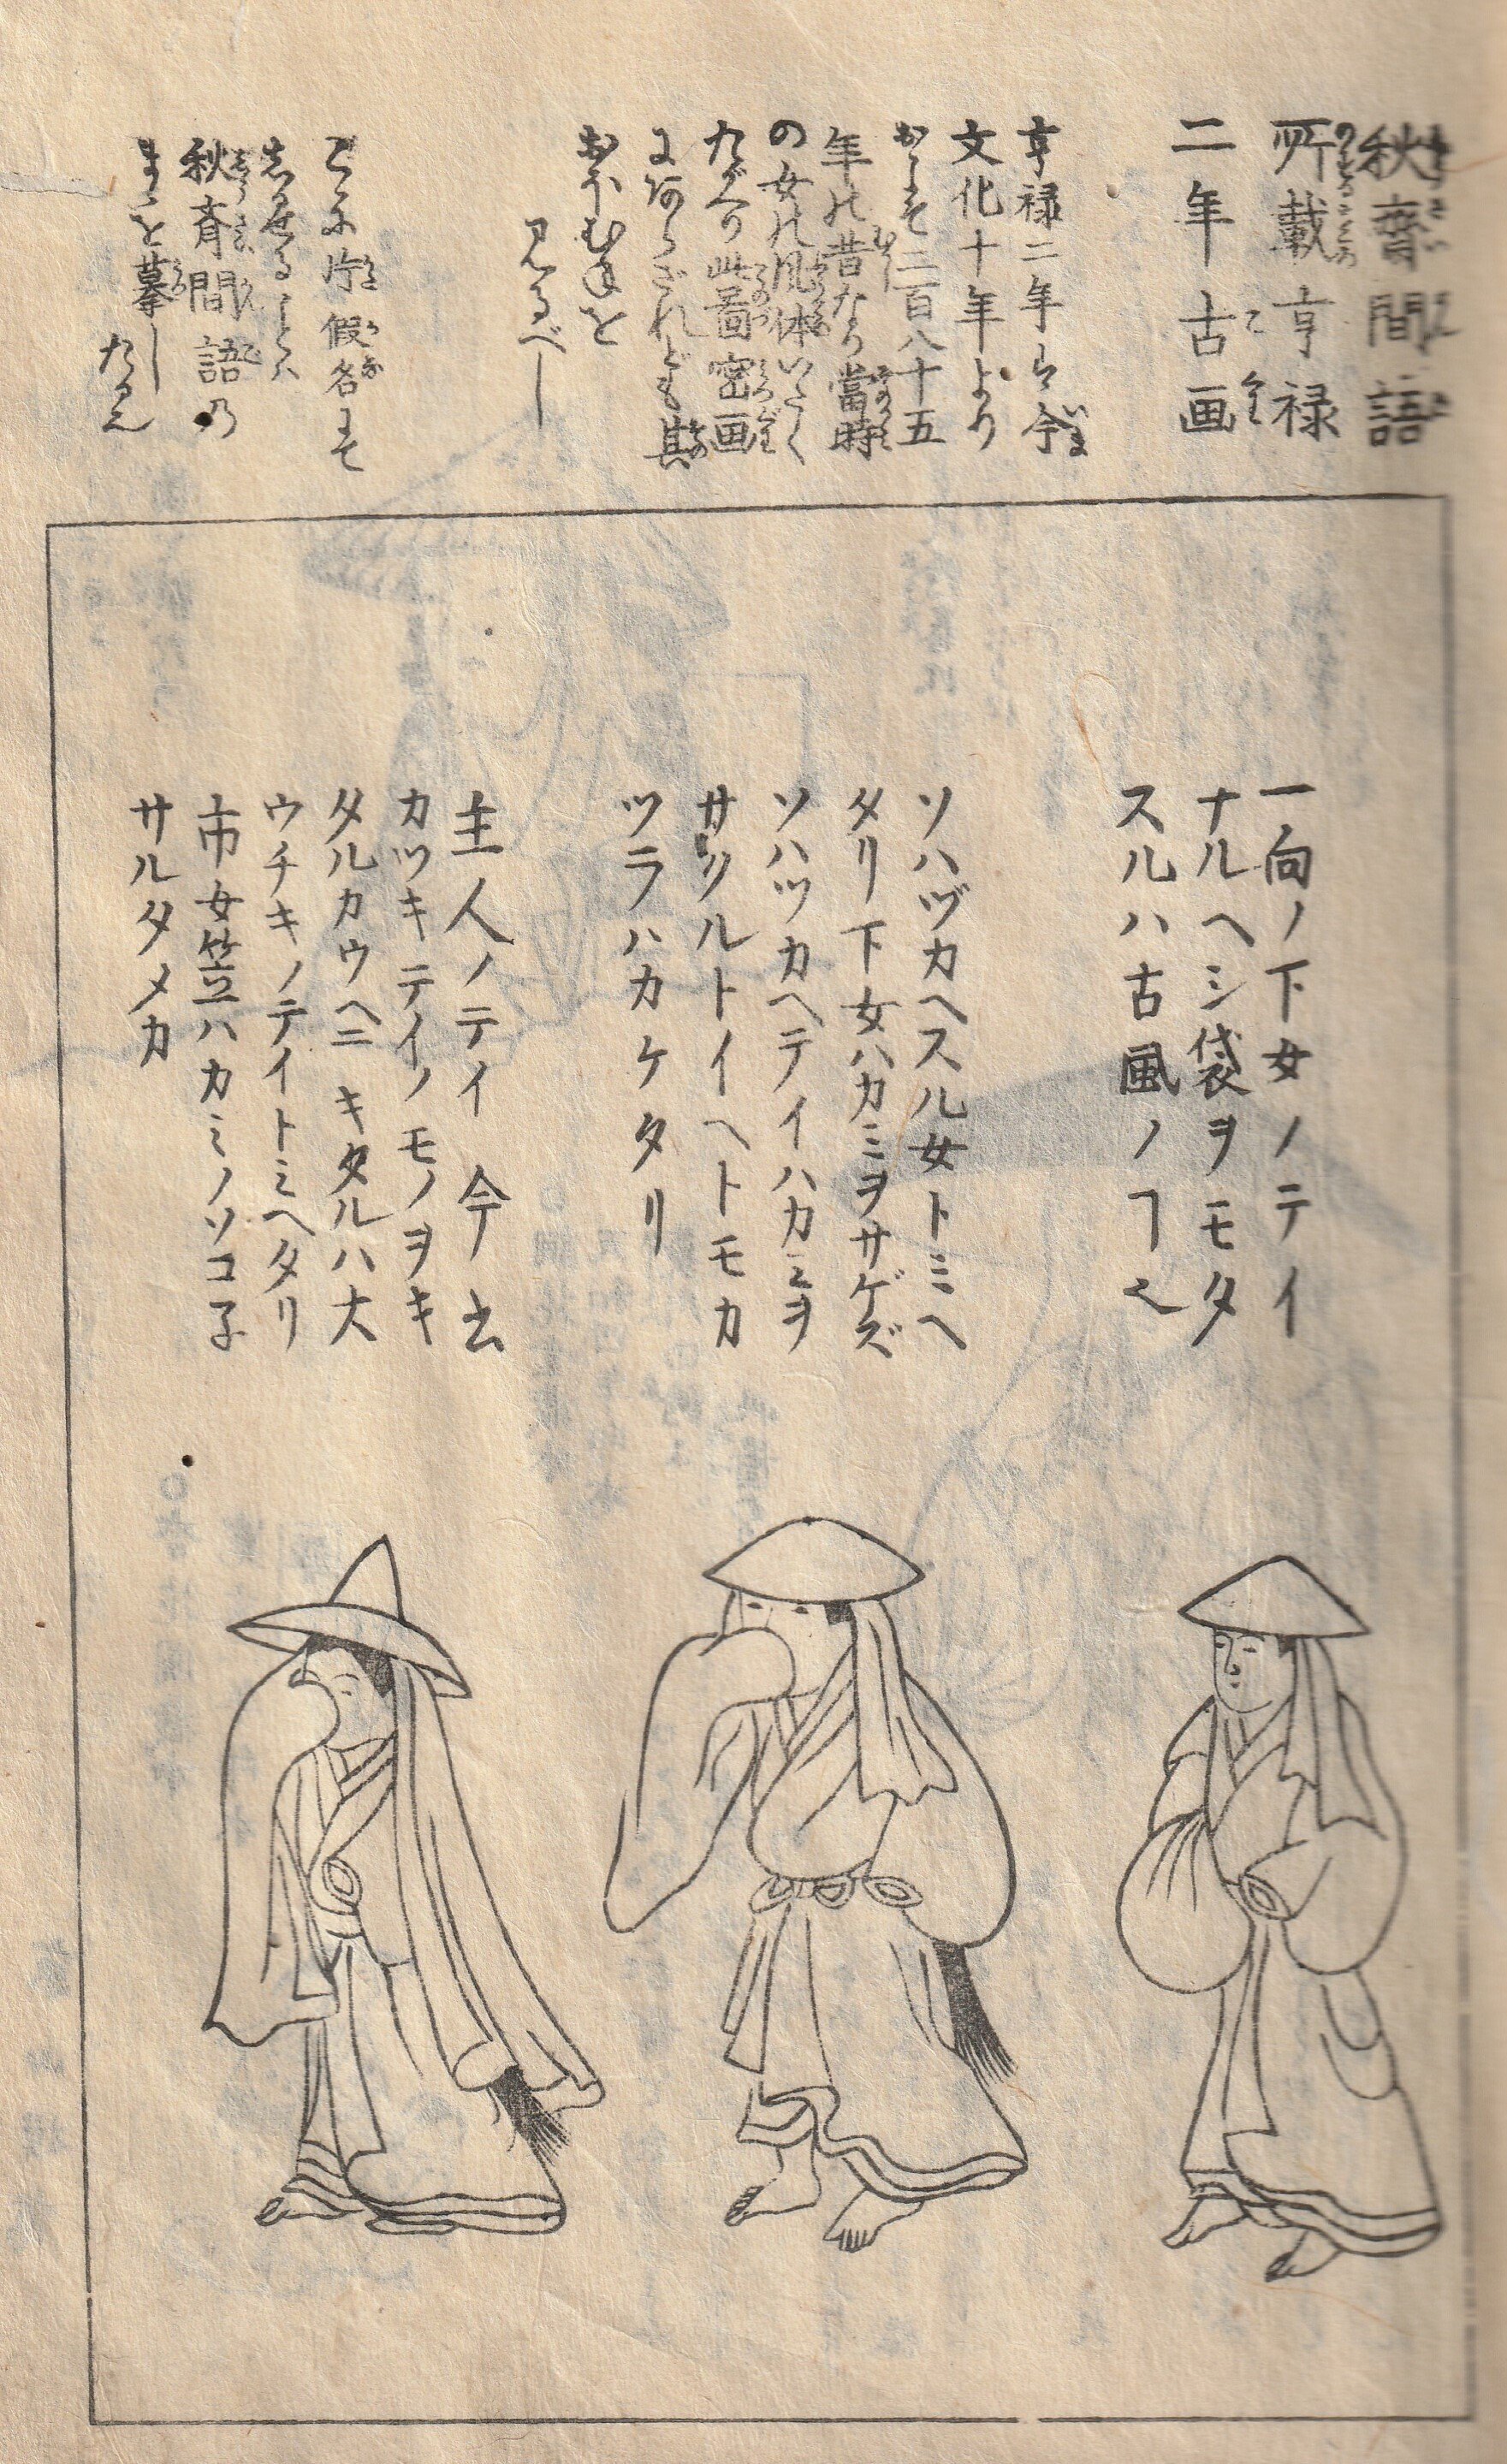 秋齋間語
所載亨禄
二年古画
亨禄二年ゟ今
文化十年より
およそ二百八十五
年の昔なり當時
の女の風体いたく
たがへり此啚密画
にあらざれども其
おほむねを
見るべし
こゝに片假名にて
しるせることは
秋斉間語の
まゝを摹し
たるえ
一向ノ下女ノテイ
ナルヘシ袋ヲモタ
スルハ古風ノヿ也
ソハヅカヘスル女トミヘ
タリ下女ハカミヲサゲズ
ソハツカヘテイハカミヲ
サクルトイヘトモカ
ツラハカケタリ
主人ノテイ今云
カツキテイノモノヲキ
タルカウヘニキタルハ大
ウチキノテイトミヘタリ
市女笠ハカミノソコ子
サルタメカ